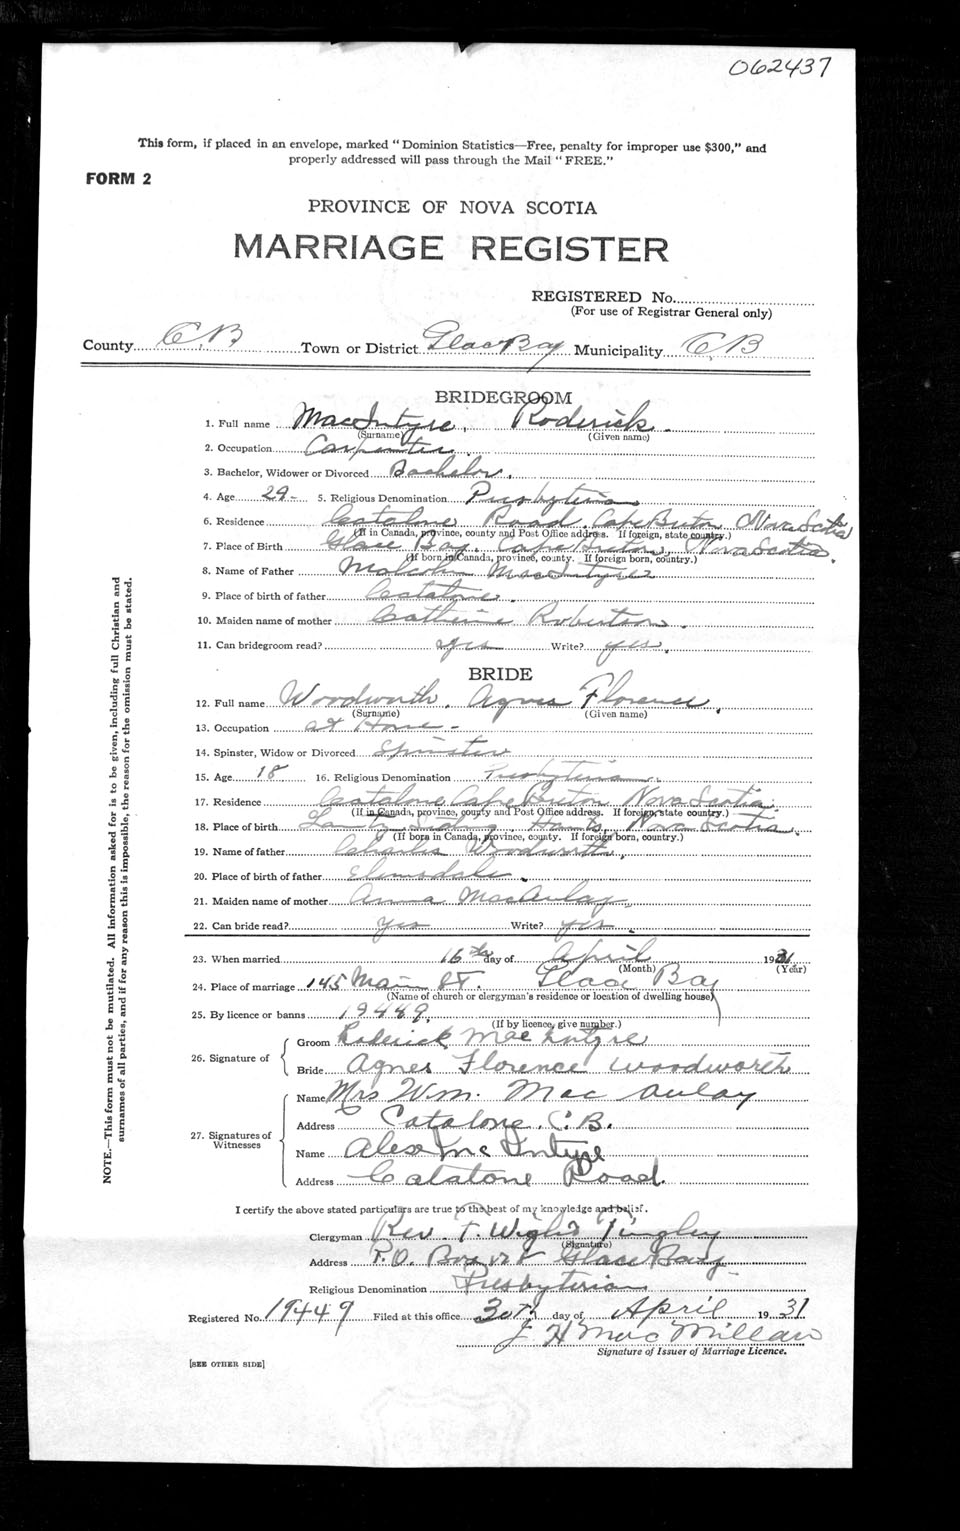 062437
This form, if placed in an envelope, marked "Dominion Statistics—Free, penalty for improper use $300," and
properly addressed will pass through the Mail "FREE."
FORM 2
PROVINCE OF NOVA SCOTIA
MARRIAGE REGISTER
REGISTERED No.
(For use of Registrar General only)
County C.B. Town or District Glace Bay Municipality C B
BRIDEGROOM
1. Full name MacIntyre, Roderick.
(Surname) (Given name)
2. Occupation Carpenter.
3. Bachelor, Widower or Divorced Bachelor.
4. Age 29- 5. Religious Denomination Presbyterian
6. Residence Catalone Road, Cape Breton, Nova Scotia
(If in Canada, province, county and Post Office address. If foreign, state country.)
7. Place of Birth Glace Bay, Cape Breton, Nova Scotia.
(If born in Canada, province, county. If foreign born, country.)
8. Name of Father Malcolm MacIntyre
9. Place of birth of father Catalone.
10. Maiden name of mother Catherine Robertson.
11. Can bridegroom read? yes Write? yes.
BRIDE
12. Full name Woodworth, Agnes Florence,
(Surname) (Given name)
13. Occupation at Home -
14. Spinster, Widow or Divorced Spinster
15. Age 18 16. Religious Denomination Presbyterian.
17. Residence Catalone, Cape Breton, Nova Scotia.
(If in Canada, province, county and Post Office address. If foreign, state country.)
18. Place of birth Siding, Hants, Nova Scotia,
(If born in Canada, province, county. If foreign born, country.)
19. Name of father Charles Woodworth,
20. Place of birth of father Elmsdale.
21. Maiden name of mother Anna MacAulay
22. Can bride read? yes Write? yes.
23. When married 16th day of April 1931
(Month) (Year)
24. Place of marriage 145 Main St. Glace Bay
(Name of church or clergyman's residence or location of dwelling house)
25. By licence or banns 19449.
(If by licence, give number.)
26. Signature of
Groom Roderick MacIntyre
Bride Agnes Florence Woodworth
27. Signatures of Witnesses
Name Mrs Wm. Mac Aulay
Address Catalone. C.B.
Name Alex Mc Intyre
Address Catalone Road.
I certify the above stated particulars are true to the best of my knowledge and belief.
Clergyman Rev. T. Wight Pingley
(Signature)
Address P.O. Box Glace Bay
Religious Denomination Presbyterian
Registered No. 19449 Filed at this office 30th day of April 1931
J H MacMillan
Signature of Issuer of Marriage Licence.
[SEE OTHER SIDE]
NOTE.—This form must not be mutilated. All information asked for is to be given, including full Christian and
surnames of all parties, and if for any reason this is impossible, the reason for the omission must be stated.